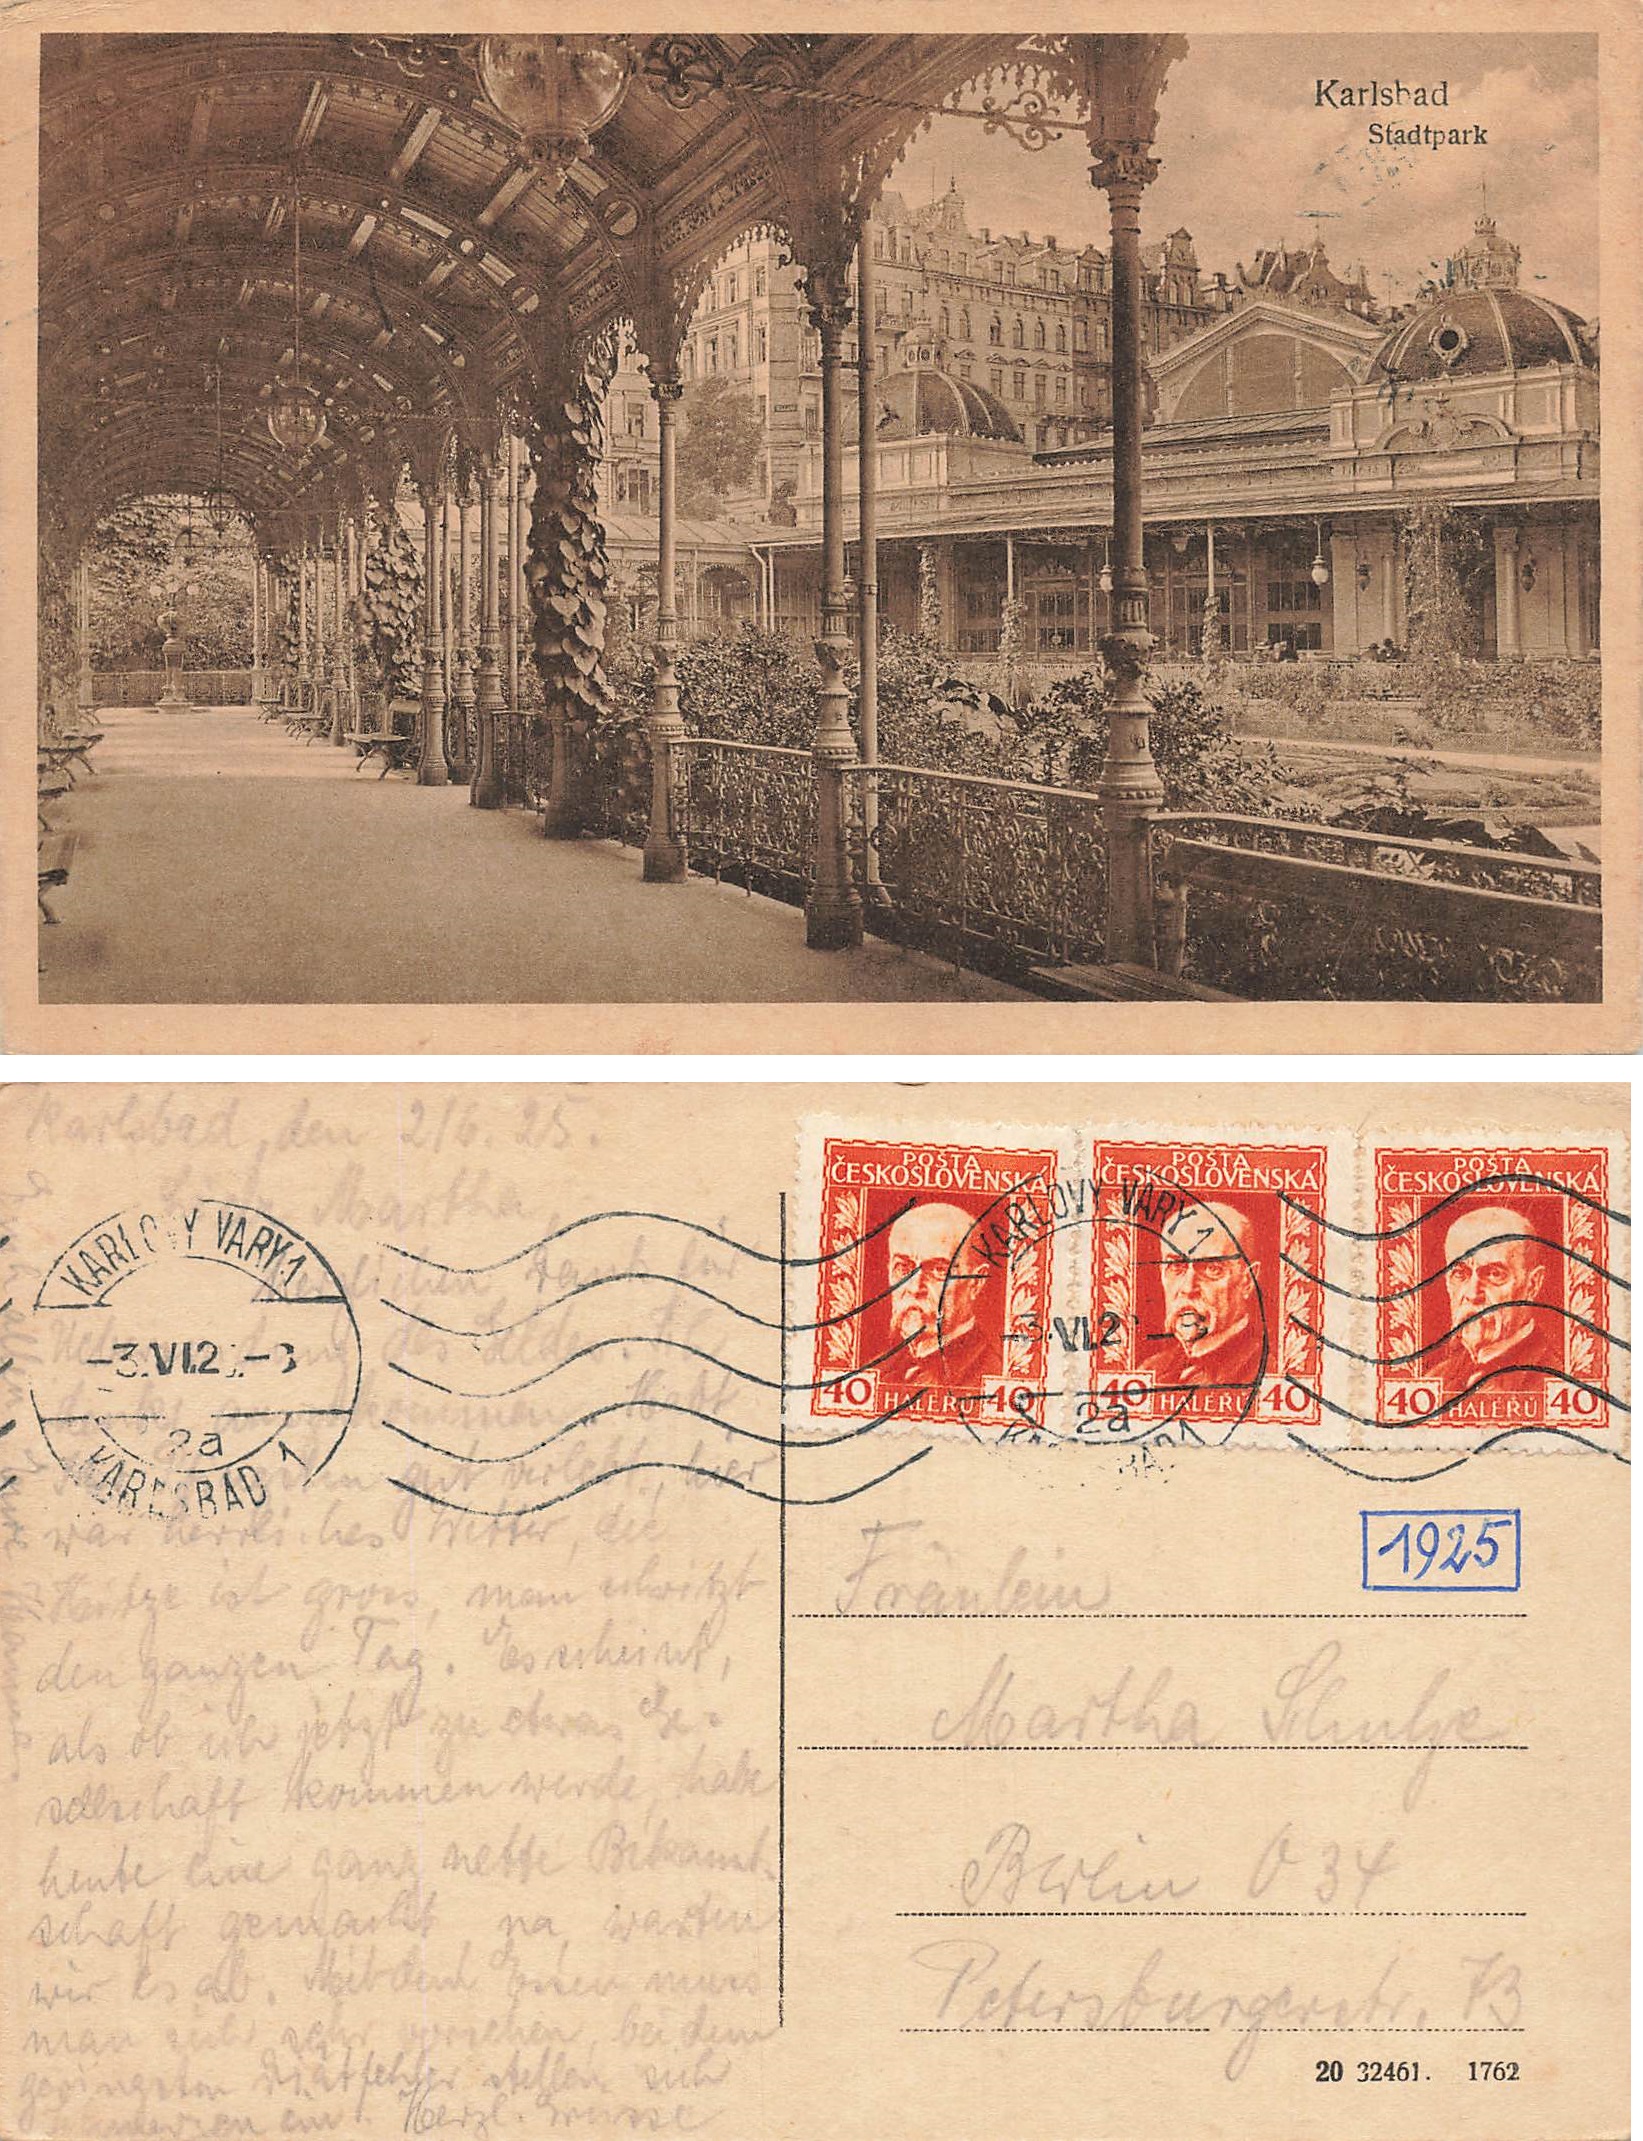 Karlsbad
Stadtpark
Karlsbad, den 2/6. 25.
Martha,
Herzlichen Dank für
des Geldes.
gut verlebt, hier
war herrliches Wetter, die
Hitze ist gross, man schwitzt
den ganzen Tag. Es scheint,
als ob ich jetzt zu etwas Ge-
sellschaft kommen werde, habe
heute eine ganz nette Bekannt-
schaft gemacht, na, warten
wir es ab. Mit dem Essen muss
man sich sehr vorsehen, bei dem
geringsten Diätfehler stellen sich
Schmerzen ein. Herzl. Grüsse
KARLOVY VARY 1
-3.VI.2 -8
2a
KARLSBAD 1
POŠTA
ČESKOSLOVENSKÁ
40 HALÉŘŮ 40
POŠTA
ČESKOSLOVENSKÁ
40 HALÉŘŮ 40
POŠTA
ČESKOSLOVENSKÁ
40 HALÉŘŮ 40
KARLOVY VARY 1
-3.VI.2 -8
2a
1925
Fräulein
Martha Schulze
Berlin O 34
Petersburgerstr. 73
20 32461. 1762